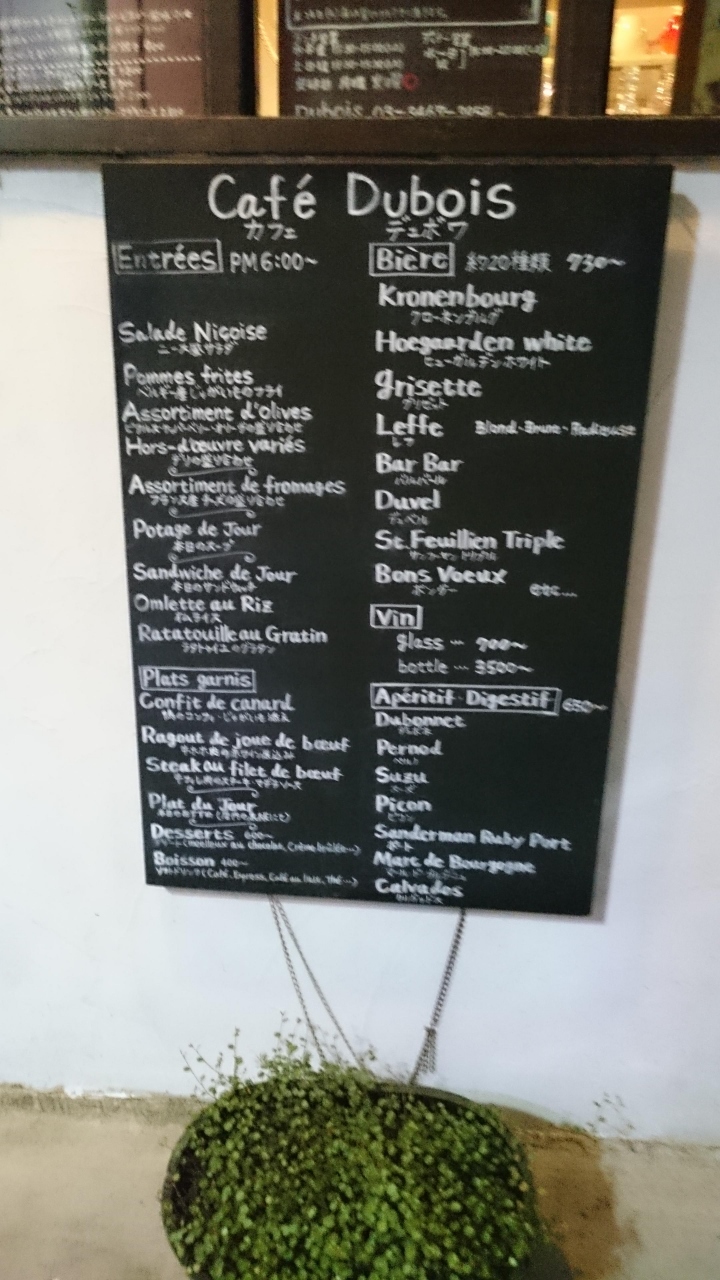 Dubois 03-3467-
Café Dubois
カフェ デュボワ
Entrées PM6:00~
Salade Niçoise
ニース風サラダ
Pommes frites
ベルギー産じゃがいものフライ
Assortiment d'olives
Hors-d'œuvre variés
デリの盛り合わせ
Assortiment de fromages
フランス産チーズの盛り合わせ
Potage de Jour
本日のスープ
Sandwiche de Jour
本日のサンドウィッチ
Omlette au Riz
オムライス
Ratatouille au Gratin
ラタトゥイユのグラタン
Plats garnis
Confit de canard
鴨のコンフィ・じゃがいも添え
Ragout de joue de bœuf
Steak au filet de bœuf
Plat du Jour
Desserts 600~
デザート(moelleux au chocolat, Crème brûlée...)
Boisson 400~
ソフトドリンク(Café, Express, Café au lait, Thé...)
Bière 約20種類 730~
Kronenbourg
クローネンブルグ
Hoegaarden white
ヒューガルデンホワイト
grisette
グリゼット
Leffe Blond・Brune・Radieuse
レフ
Bar Bar
バルバール
Duvel
デュベル
St.Feuillien Triple
Bons Voeux
ボンヴー
etc...
Vin
glass … 700~
bottle … 3500~
Apéritif・Digestif 650~
Dubonnet
デュボネ
Pernod
ペルノ
Suzu
スーズ
Picon
ピコン
Sanderman Ruby Port
ポート
Marc de Bourgogne
マール・ド・ブルゴーニュ
Calvados
カルヴァドス